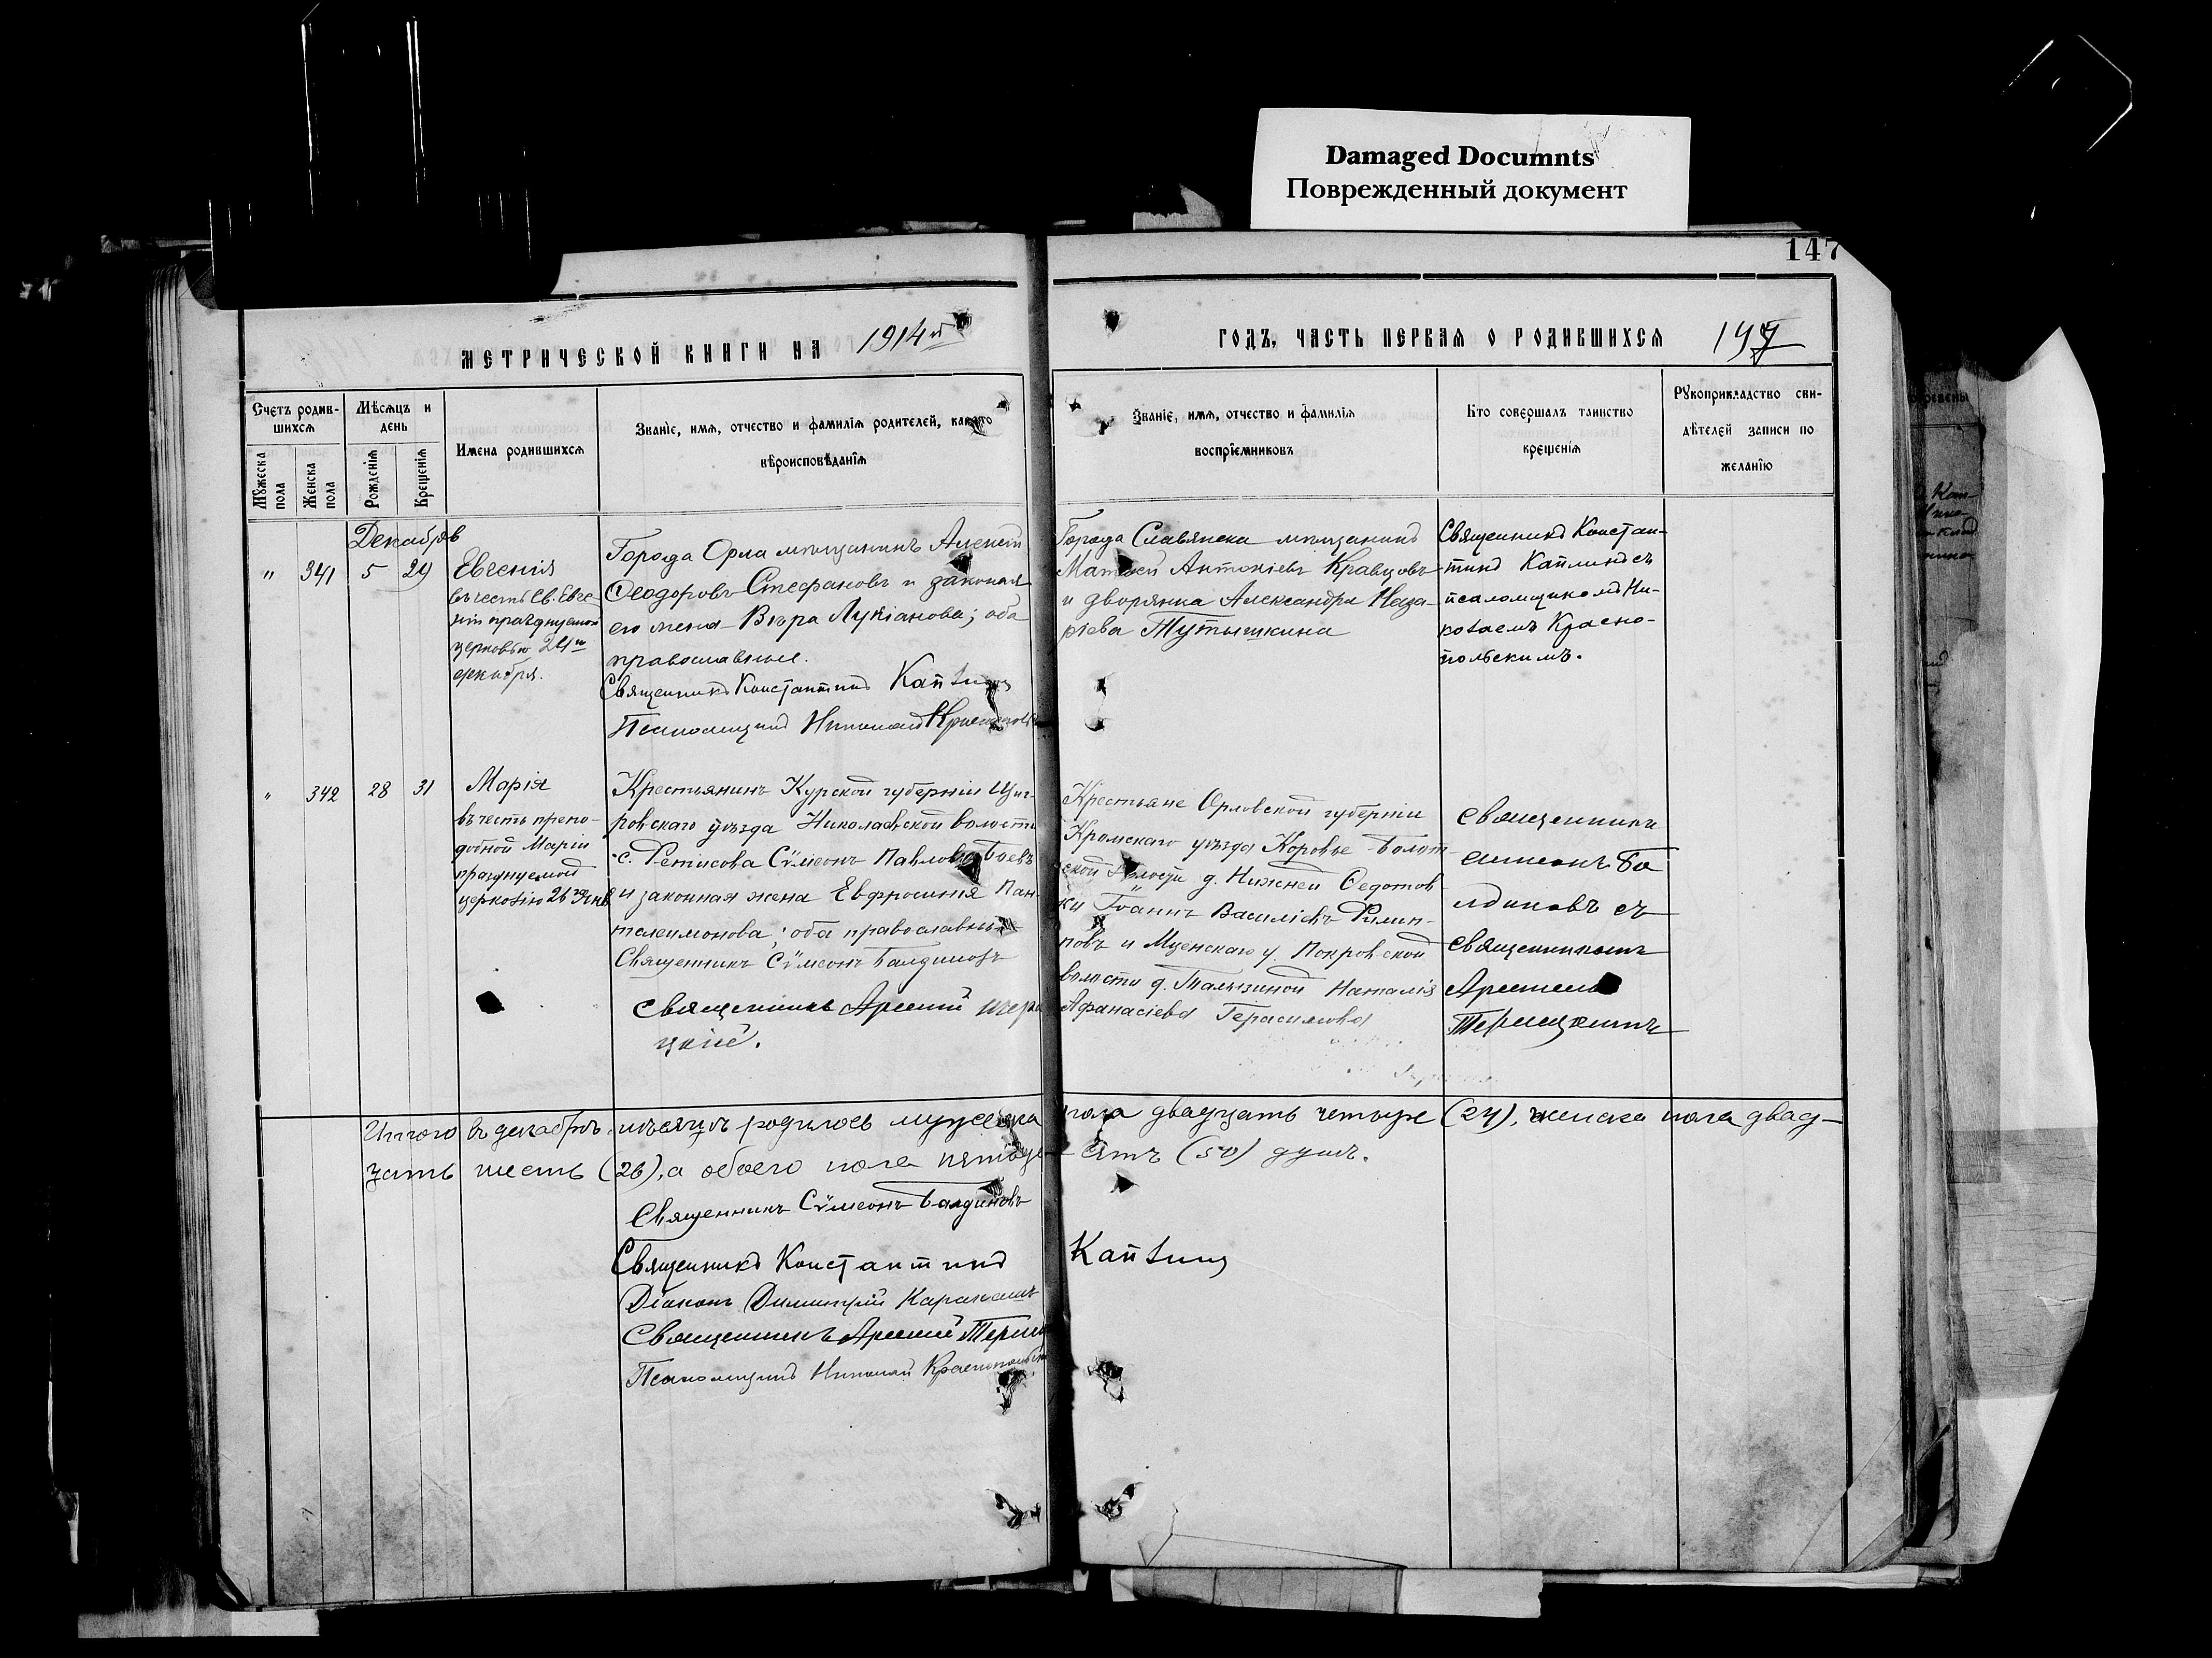 Damaged Documnts
Поврежденный документ
147
МЕТРИЧЕСКОЙ КНИГИ НА 1914й
ГОДЪ, ЧАСТЬ ПЕРВАЯ О РОДИВШИХСЯ
Счетъ родив-
шихся
Мужеска
пола
Женска
пола
Мѣсяцъ и
день
Рожденія
Крещенія
Имена родившихся
Званіе, имя, отчество и фамилія родителей, какого
вѣроисповѣданія
Званіе, имя, отчество и фамилія
воспріемниковъ
Кто совершалъ таинство
крещенія
Рукоприкладство сви-
дѣтелей записи по
желанію
Декабрь
" 341 5 24
Евгенія
въ честь Св. Евге-
ніи празднуемой
церковью 24го
декабря.
Города Орла мѣщанинъ Алексѣй
Ѳеодоровъ Стефановъ и законная
его жена Вѣра Лукіанова; оба
православные.
Священникъ Константинъ Каплинъ
Псаломщикъ Николай
Города Славянска мѣщанинъ
Матѳей Антоніевъ Кравцовъ
и дворянка Александра Наза-
ріева Тутышкина
Священникъ Констан-
тинъ Каплинъ съ
псаломщикомъ Ни-
колаемъ Красно-
польскимъ.
" 342 28 31
Марія
въ честь препо-
добной Маріи
празднуемой
церковію 26го Янв.
Крестьянинъ Курской губерніи Щиг-
ровскаго уѣзда Николаевской волости
с. Сѵмеонъ Павловъ Боевъ
и законная жена Евфросинія Пан-
телеимонова; оба православные
Священникъ Сѵмеонъ Балдиновъ
Священникъ Арсеній
цкій.
Крестьяне Орловской губерніи
Кромскаго уѣзда Коровье-Болот-
ской волости д. Нижней Ѳедотов-
ки Іоаннъ Василіевъ Филип-
повъ и Мценскаго у. Покровской
волости д. Наталія
Аѳанасіева Герасимова
Священникъ
Симеонъ Ба
лдиновъ съ
священникомъ
Арсеніемъ
Итого въ декабрѣ мѣсяцѣ родилось мужеска пола двадцать четыре (24), женска пола двад-
цать шесть (26), а обоего пола пятьдесятъ (50) душъ.
Священникъ Сѵмеонъ Балдиновъ
Священникъ Константинъ Каплинъ
Діаконъ Димитрій
Священникъ Арсеній
Псаломщикъ Николай Краснопольскій